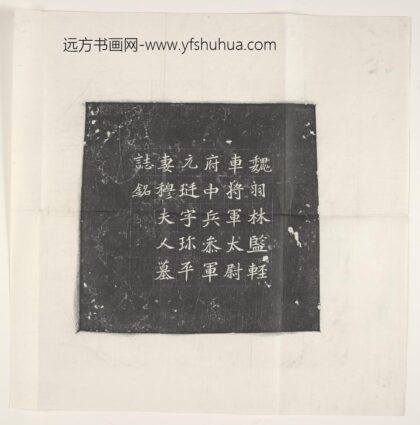 远方书画网-www.yfshuhua.com
魏羽林監軽
車将軍太尉
府中兵叅軍
元珽字珎平
妻穆夫人墓
誌銘